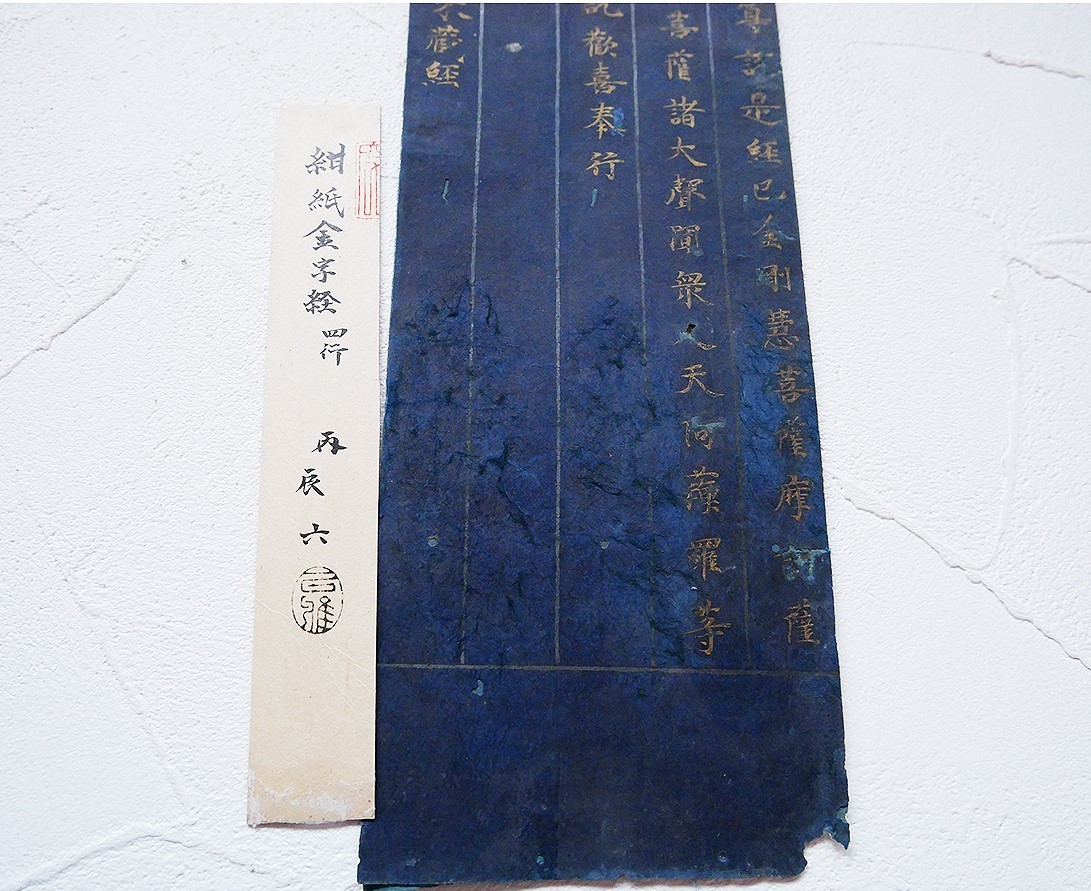 尊説是經已金剛慧菩薩摩訶薩
菩薩諸大聲聞衆人天阿蘓羅等
説歡喜奉行
来藏經
紺紙金字経 四行
丙辰 六